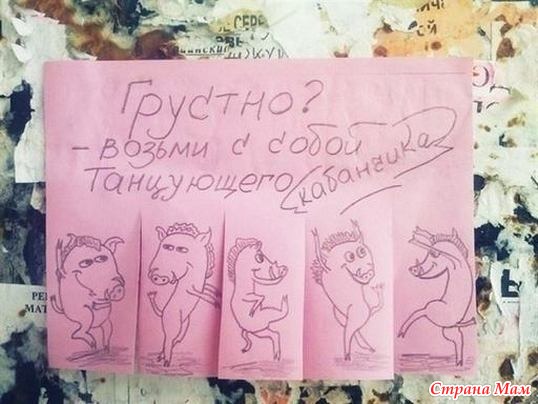 Грустно?
- возьми с собой
танцующего кабанчика
Страна Мам